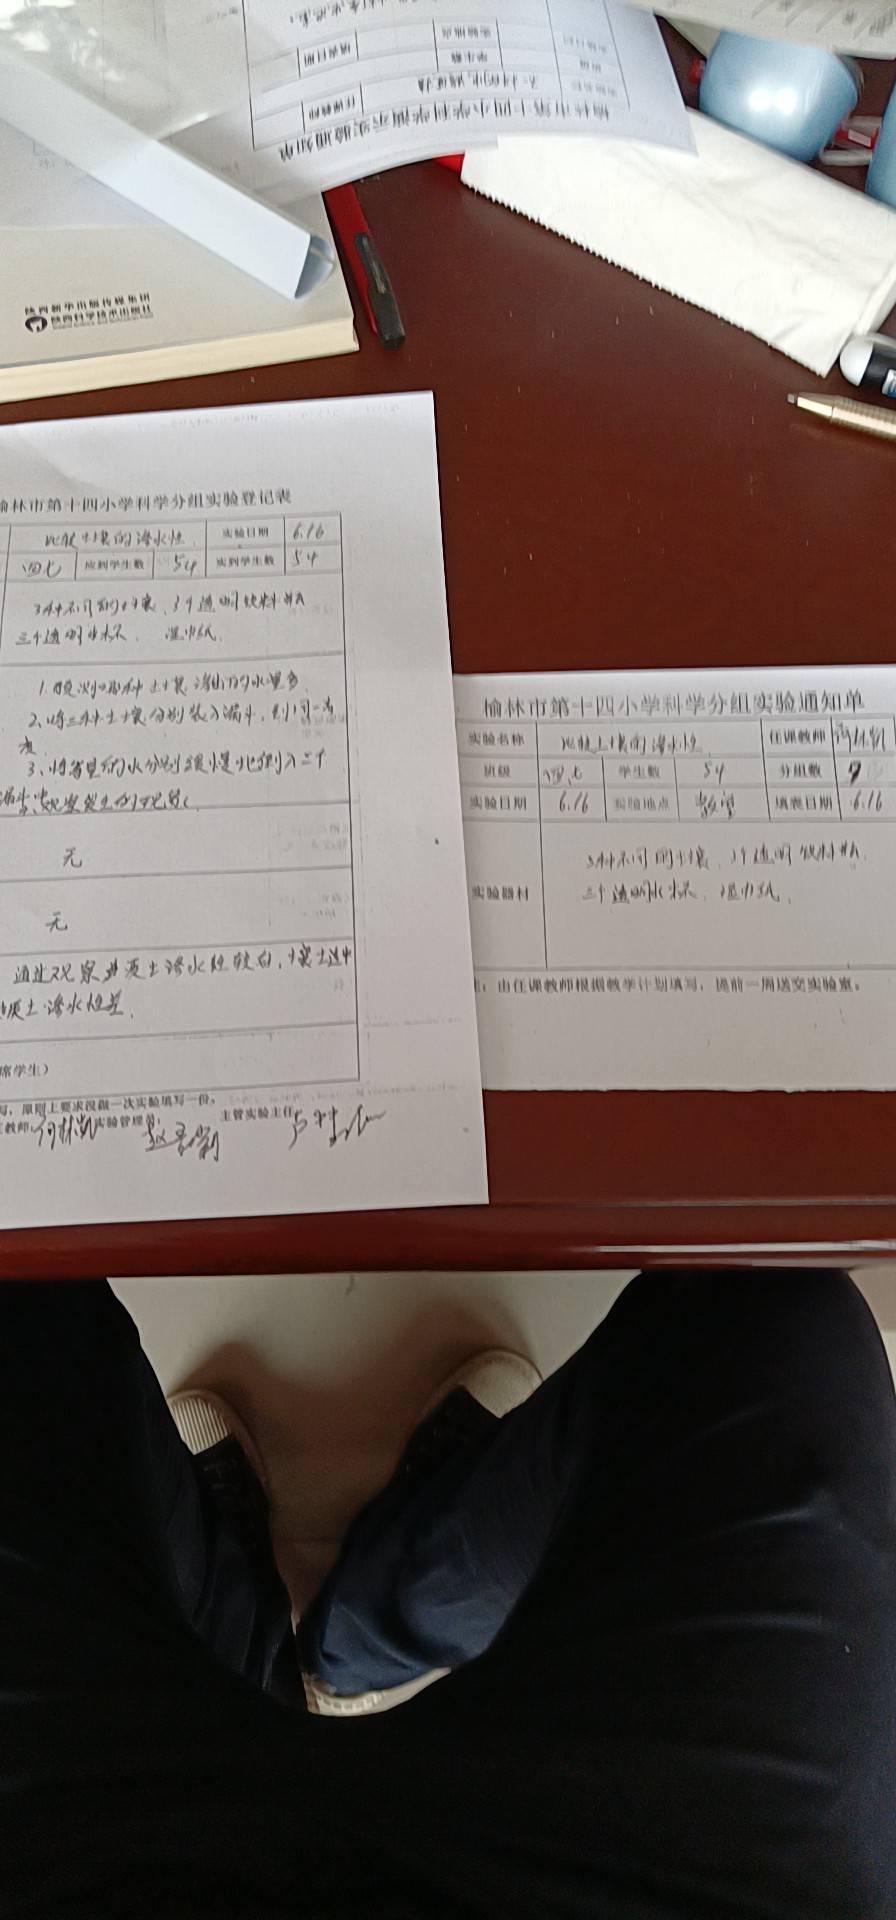 陕西新华出版传媒集团
陕西科学技术出版社
榆林市第十四小学科学演示实验通知单
任课教师
学生数
填表日期
实验地点
榆林市第十四小学科学分组实验登记表
比较土壤的渗水性 实验日期 6.16
四七 应到学生数 54 实到学生数 54
3种不同的土壤、3个透明饮料瓶
三个透明水杯、湿巾纸
1.预测哪种土壤渗出的水更多
2、将三种土壤分别装入漏斗,到同一高
度
3、将等量的水分别缓慢地倒入三个
漏斗中观察发生的现象
无
无
通过观察 质土渗水性较 ,壤土适中
质土渗水性差.
席学生)
写,原则上要求没做一次实验填写一份。
教师 实验管理员: 主管实验主任:
榆林市第十四小学科学分组实验通知单
实验名称 比较土壤的渗水性 任课教师
班级 四、七 学生数 54 分组数 9
实验日期 6.16 实验地点 教室 填表日期 6.16
3种不同的土壤、3个透明饮料瓶.
实验器材 三个透明水杯、湿巾纸、
:由任课教师根据教学计划填写,提前一周送交实验室。